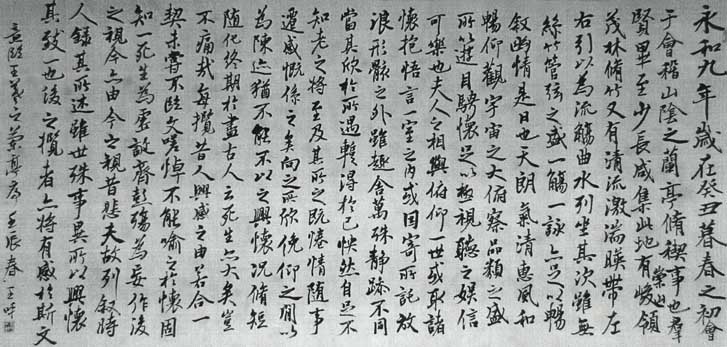 永和九年歲在癸丑暮春之初會
于會稽山陰之蘭亭脩稧事也羣
賢畢至少長咸集此地有崇山峻領
茂林脩竹又有清流激湍暎帶左
右引以為流觴曲水列坐其次雖無
絲竹管弦之盛一觴一詠亦足以暢
敘幽情是日也天朗氣清惠風和
暢仰觀宇宙之大俯察品類之盛
所以遊目騁懷足以極視聽之娛信
可樂也夫人之相與俯仰一世或取諸
懷抱悟言一室之內或因寄所託放
浪形骸之外雖趣舍萬殊靜躁不同
當其欣於所遇暫得於己怏然自足不
知老之將至及其所之既惓情隨事
遷感慨係之矣向之所欣俛仰之間以
為陳迹猶不能不以之興懷況脩短
隨化終期於盡古人云死生亦大矣豈
不痛哉每攬昔人興感之由若合一
契未嘗不臨文嗟悼不能喻之於懷固
知一死生為虛誕齊彭殤為妄作後
之視今亦由今之視昔悲夫故列敘時
人錄其所述雖世殊事異所以興懷
其致一也後之攬者亦將有感於斯文
意臨王羲之蘭亭序 壬辰春